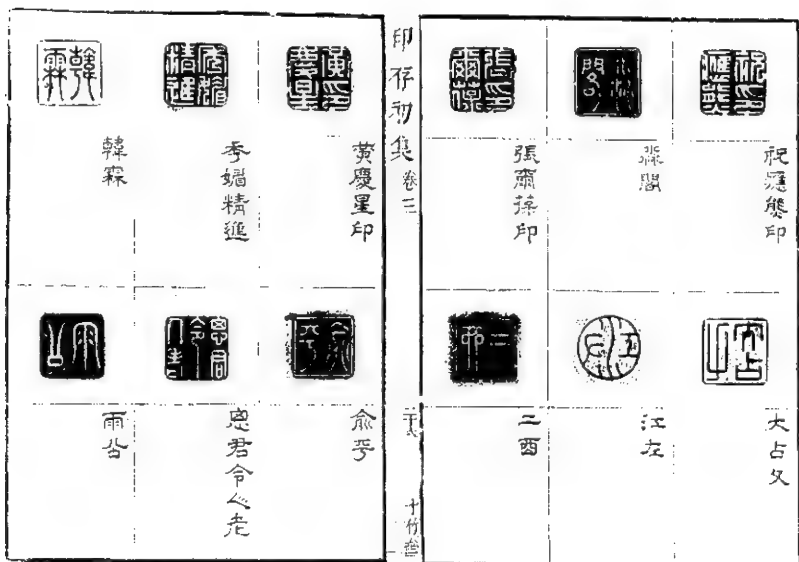 祝應熊印
張爾葆印
大占父
江左
二酉
印存初集
卷三
十竹齋
黃慶星印
季媚精進
韓霖
俞平
思君令人老
雨公